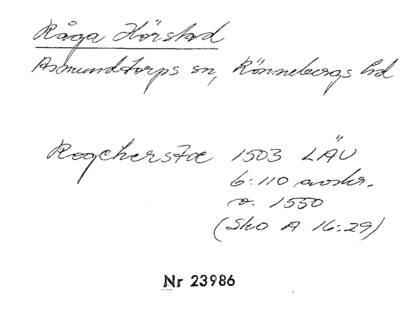 Råga Hörstad
Asmundtorps sn, Rönnebergs hd
Rogcherstæ 1503 LÄU
6:110 avskr.
o. 1550
(Sko A 16:29)
Nr 23986